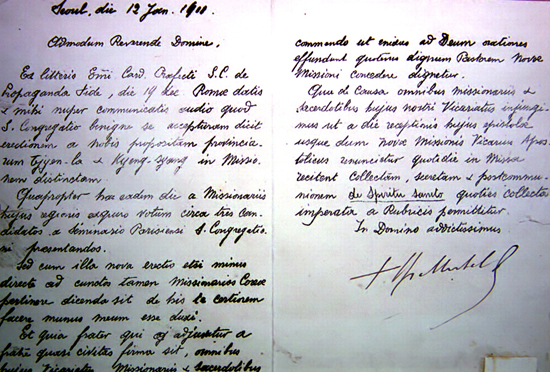 Seoul, die 12 Jan. 1911.
Admodum Reverende Domine,
Ex litteris Emi Card. Praefecti S.C. de
Propaganda Fide, die 19 Dec Romae datis
& mihi nuper communicatis audio quod
S. Congregatio benigne se accepturam dicit
erectionem a nobis propositam provincia-
rum Tjyen-la & Kyeng-syang in Missio-
nem distinctam.
Quapropter hac eadem die a Missionariis
hujus regionis exquiro votum circa tres can-
didatos a Seminario Parisiensi S. Congregatio-
ni praesentandos.
Sed cum illa nova erectio etsi minus
directe ad cunctos tamen Missionarios Coreae
pertinere dicenda sit de his te certiorem
facere munus meum esse duxi.
Et quia frater qui adjuvatur a
fratre quasi civitas firma sit, omnibus
hujus Vicariatus Missionariis & sacerdotibus
commendo ut enixas ad Deum orationes
effundent quatenus dignum Pastorem Novae
Missioni concedere dignetur.
Qua de Causa omnibus missionariis &
sacerdotibus hujus nostri Vicariatus injungi-
mus ut a die receptionis hujus epistolae
usque dum novae Missionis Vicarius Apos-
tolicus renuncietur quotidie in Missa
recitent Collectam, secretam & postcommu-
nionem de Spiritu Sancto quoties collecta
imperata a Rubricis permittitur.
In Domino addictissimus